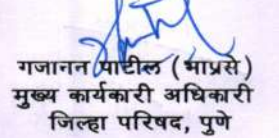 गजानन पाटील (भाप्रसे)
मुख्य कार्यकारी अधिकारी
जिल्हा परिषद, पुणे